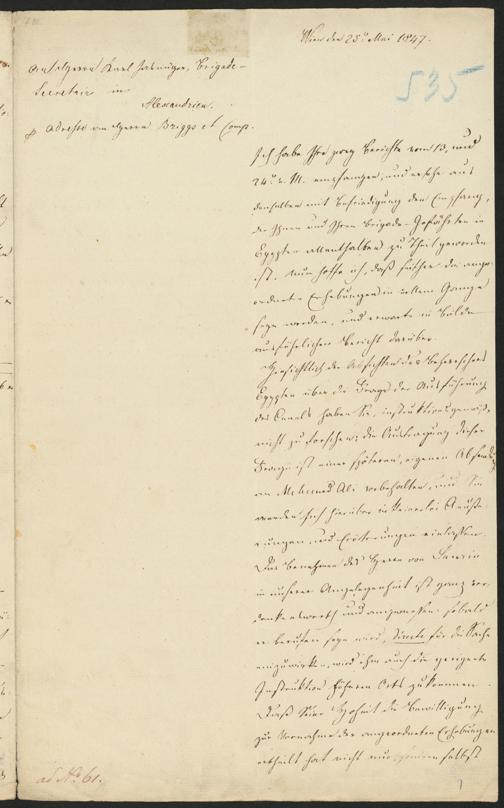 Wien den 25n Mai 1847.
An Herrn Karl Jasnüger, Brigade-
Secretair in
Alexandrien.
p Adresse an Herrn Briggs et Comp.
535
Ich habe Ihre zwey Berichte vom 13, und
24n v. M. empfangen, und ersehe aus
denselben mit Befriedigung den Empfang,
der Ihnen und Ihren Brigade-Gefährten in
Egypten allenthalben zu Theil geworden
ist. Nun hoffe ich, daß seither die ange-
ordneten Erhebungen in vollem Gange
seyn werden, und erwarte in Bälde
ausführlichen Bericht darüber.
Hinsichtlich der Absichten des Beherrschers
Egypten über die Frage der Ausführung
des Canals haben Sie, instruktionsgemäß,
nicht zu forschen; die Austragung dieser
Frage ist einer späteren, eigenen Absendung
an Mehemed Ali vorbehalten, und Sie
werden sich hierüber in keinerlei Äuße-
rungen und Erörterungen einlassen.
Das Benehmen des Herrn von Laurin
in unserer Angelegenheit ist ganz ver-
dankenswerth und angemessen. sobald
er berufen seyn wird, direkte für die Sache
einzuwirken, wird ihm auch die geeignete
Instruktion höheren Orts zukommen.
Daß Seine Hoheit die Bewilligung
zur Vornahme der angeordneten Erhebungen
ertheilt hat nicht nur, sondern selbst
ad No 61.